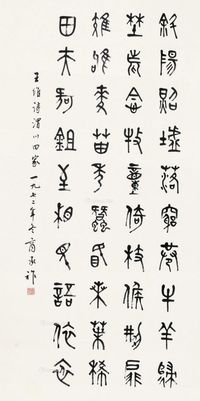 斜陽照墟落窮巷牛羊歸
埜老念牧童倚杖候荊扉
雉雊麥苗秀蠶眠桑葉稀
田夫荷鉏至相見語依依
王維詩渭川田家 一九七二年冬 商承祚